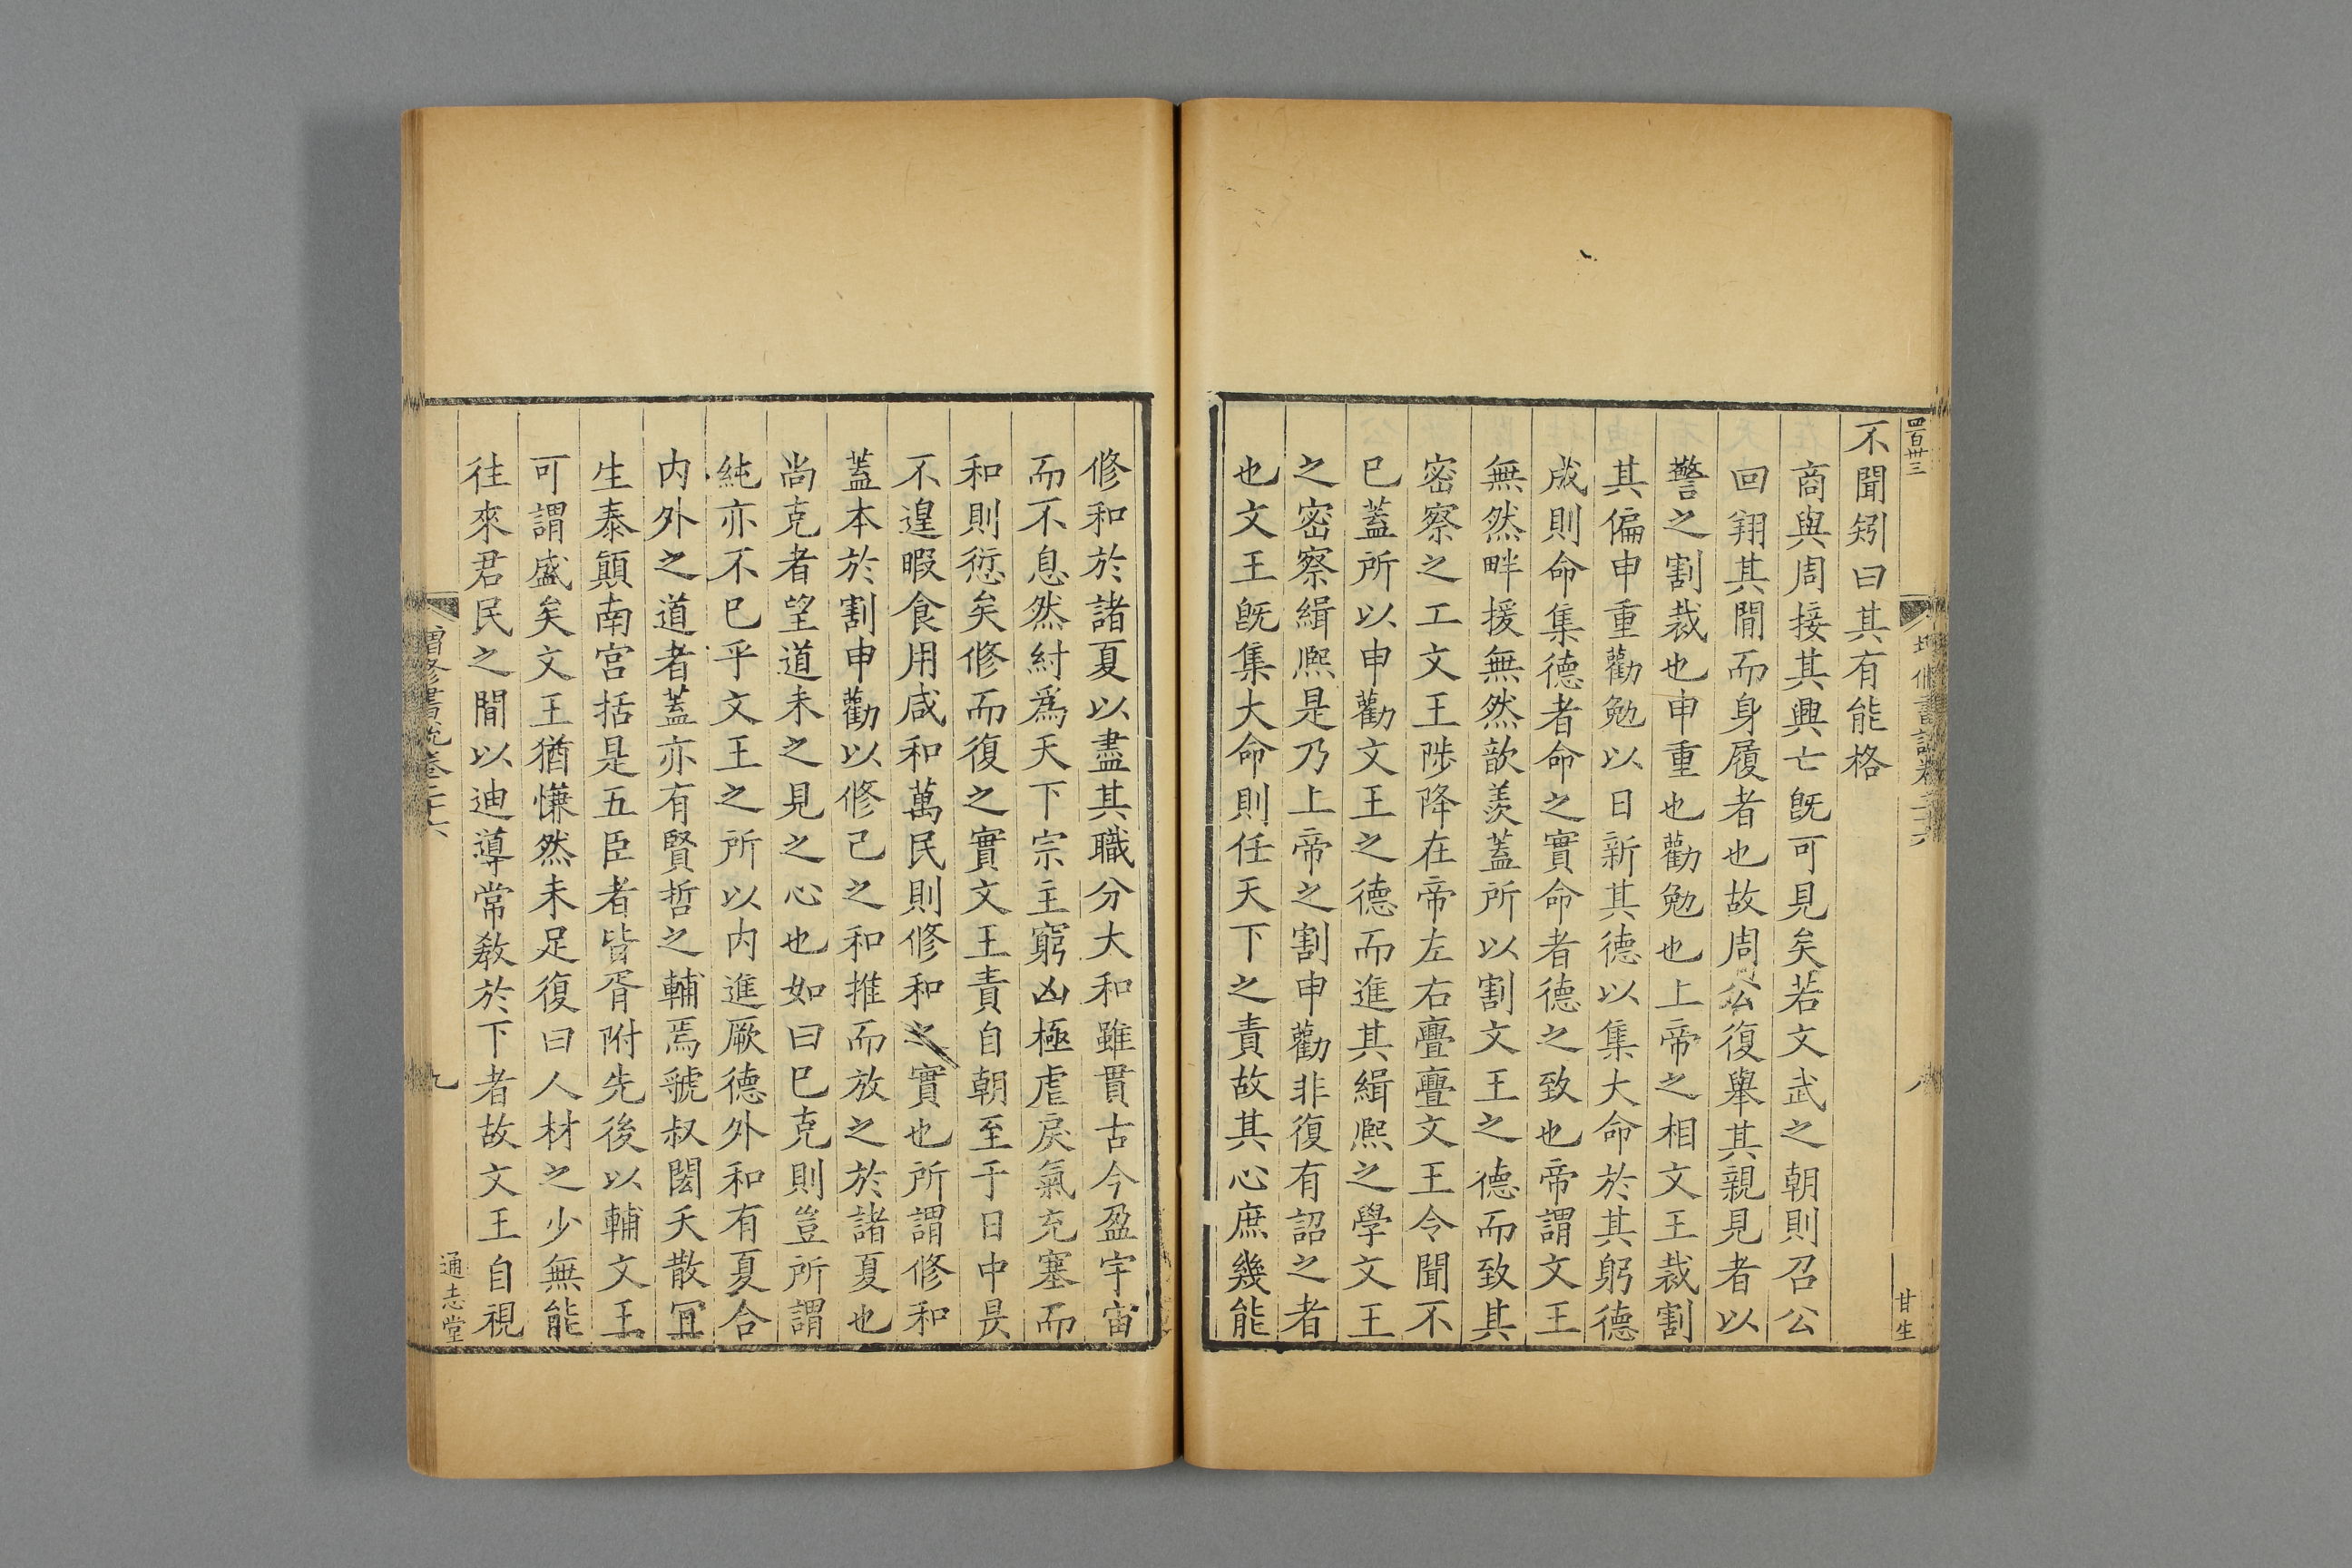 四百卅三
増修書說卷二十六
八
甘生
不聞矧曰其有能格
商與周接其興亡旣可見矣若文武之朝則召公
回翔其閒而身履者也故周公復舉其親見者以
警之割裁也申重也勸勉也上帝之相文王裁割
其偏申重勸勉以日新其德以集大命於其躬德
成則命集德者命之實命者德之致也帝謂文王
無然畔援無然歆羨蓋所以割文王之德而致其
密察之工文王陟降在帝左右亹亹文王令聞不
已蓋所以申勸文王之德而進其緝熈之學文王
之密察緝熈是乃上帝之割申勸非復有詔之者
也文王旣集大命則任天下之責故其心庶幾能
修和於諸夏以盡其職分大和雖貫古今盈宇宙
而不息然紂爲天下宗主窮凶極虐戾氣充塞而
和則愆矣修而復之實文王責自朝至于日中昃
不遑暇食用咸和萬民則修和之實也所謂修和
蓋本於割申勸以修己之和推而放之於諸夏也
尚克者望道未之見之心也如曰已克則豈所謂
純亦不已乎文王之所以內進厥德外和有夏合
内外之道者蓋亦有賢哲之輔焉虢叔閎夭散冝
生泰顚南宫括是五臣者皆胥附先後以輔文王
可謂盛矣文王猶慊然未足復曰人材之少無能
往來君民之閒以迪導常敎於下者故文王自視
增修書說卷二十六
九
通志堂